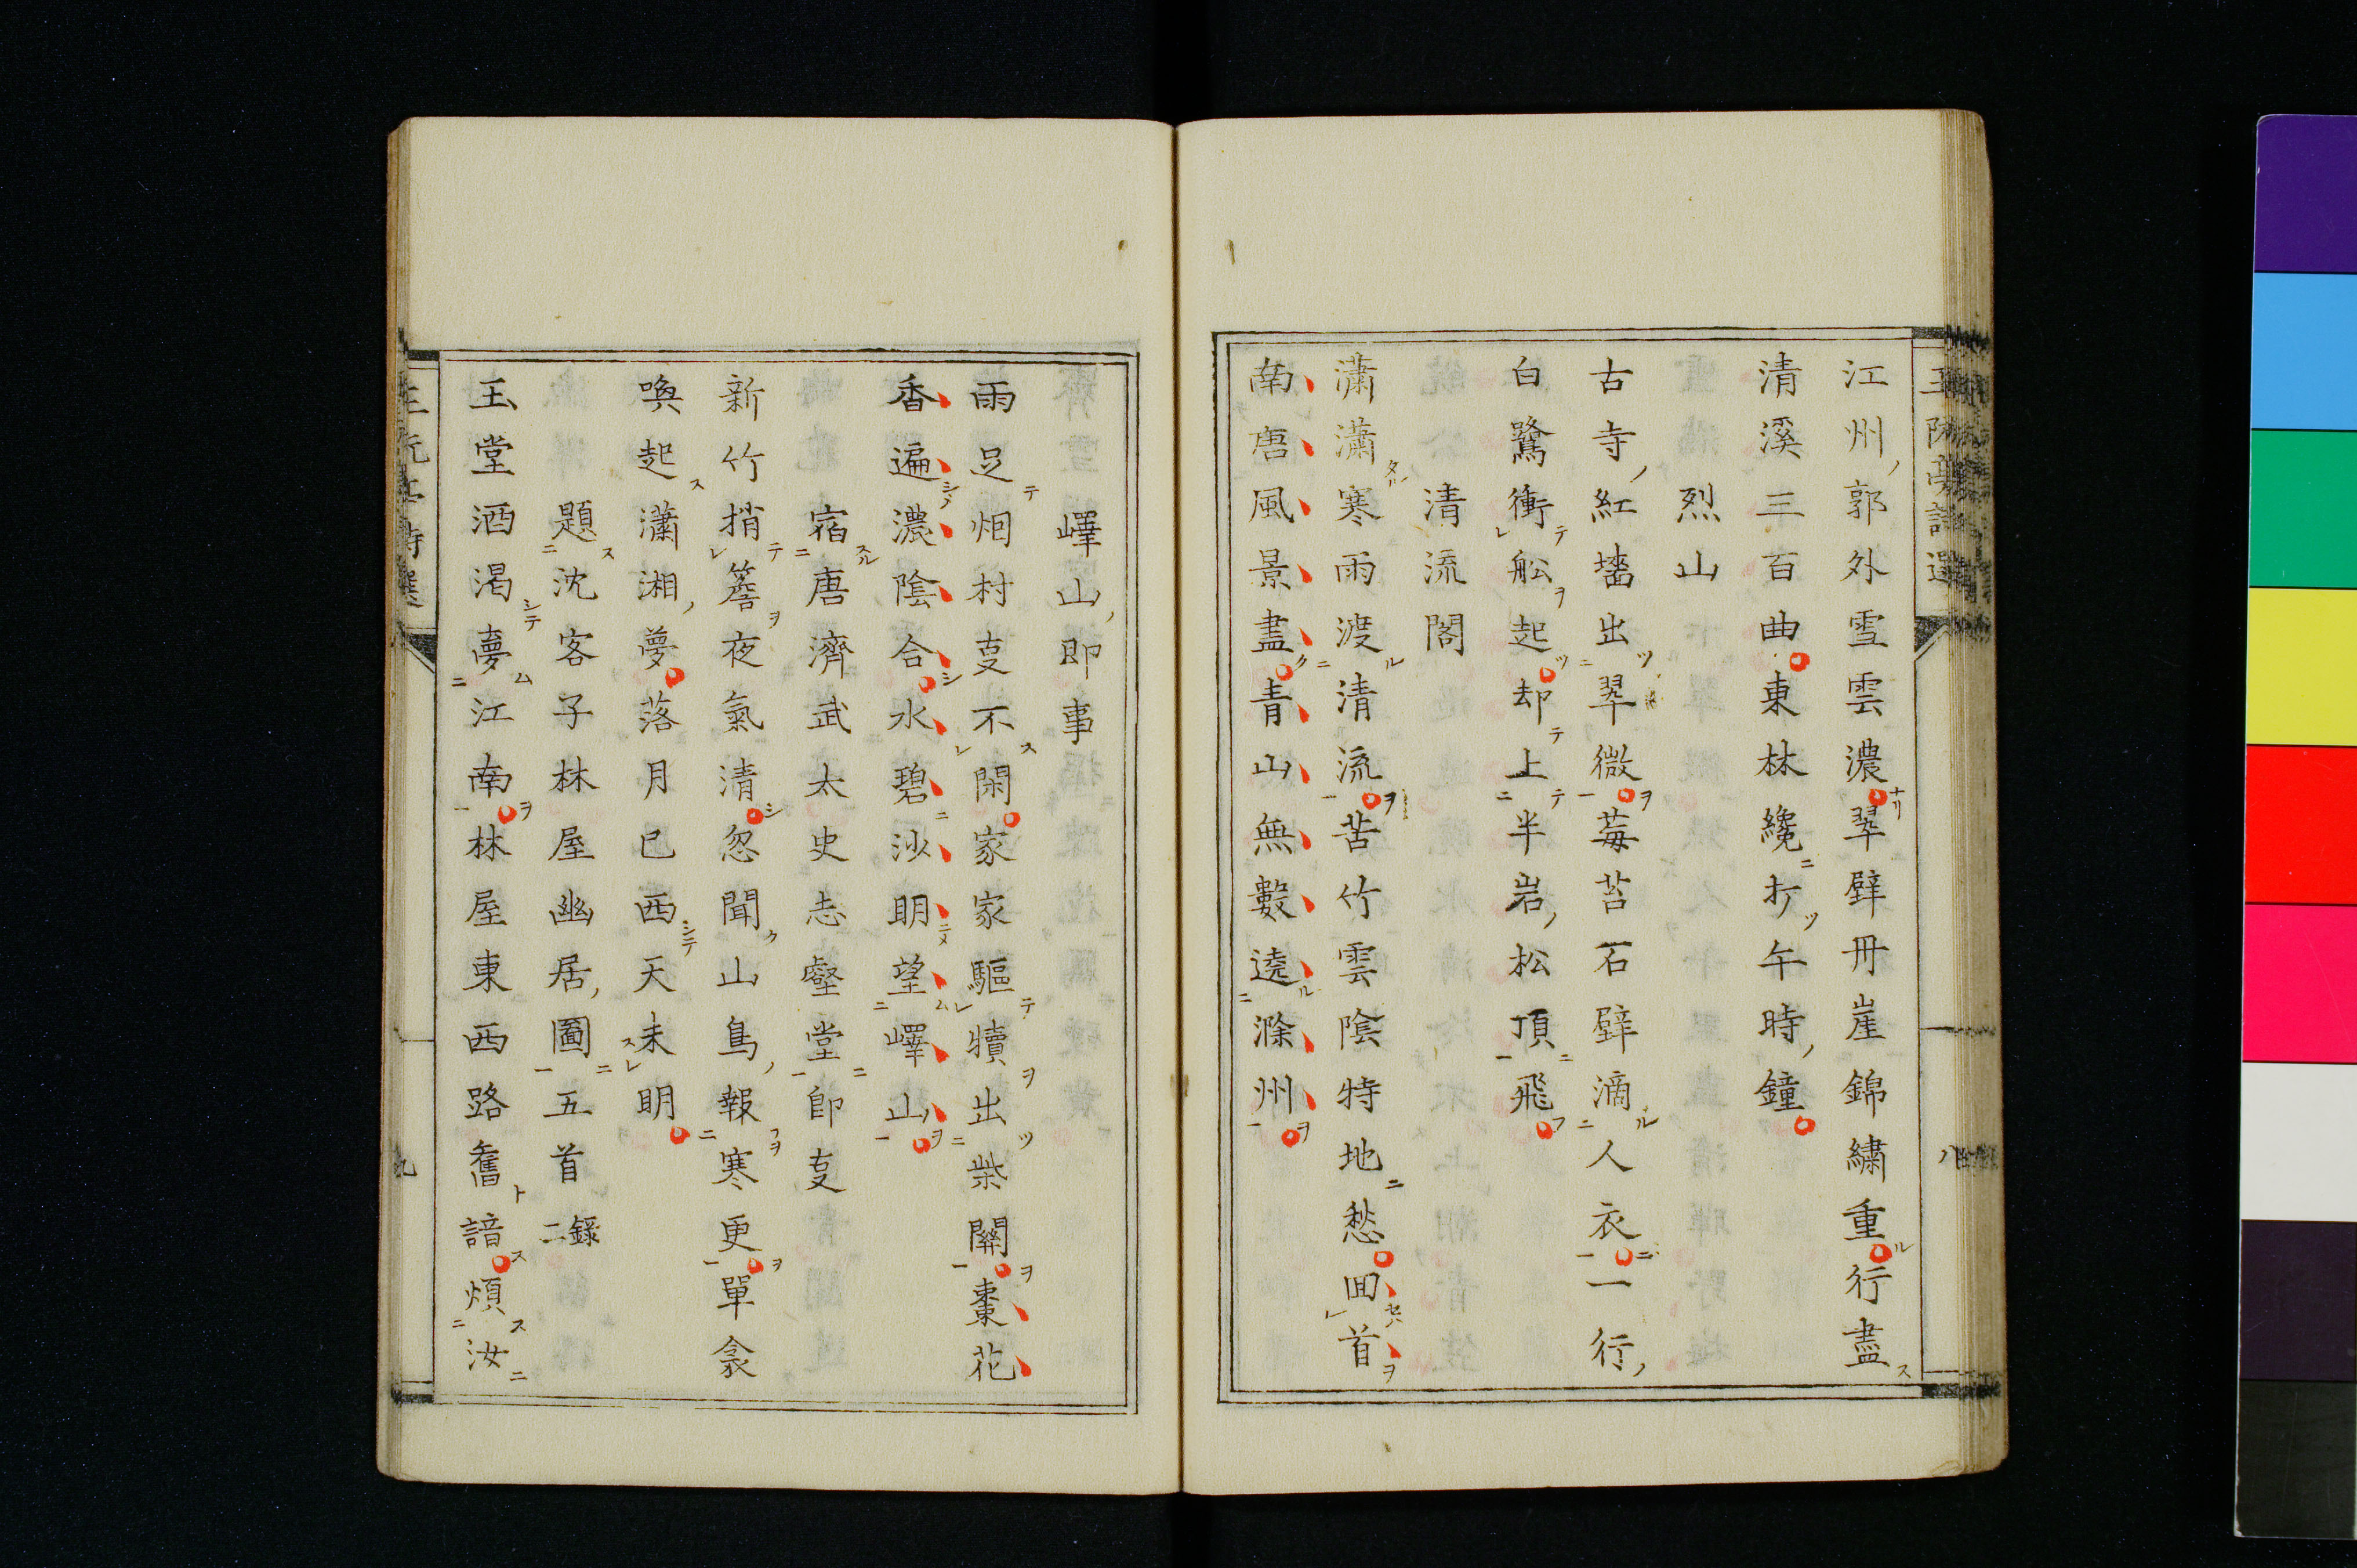 江州郭外雪雲濃翠壁丹崖錦繍重行盡
清溪三百曲東林纔打午時鐘
烈山
古寺紅墻出翠微莓苔石壁滴人衣一行
白鷺衝舩起却上半岩松頂飛
清流閣
瀟瀟寒雨渡清流苦竹雲陰特地愁囬首
南唐風景盡青山無數遶滁州
嶧山即事
雨足烟村叓不閑家家驅犢出柴關棗花
香遍濃陰合水碧沙明望嶧山
宿唐濟武太史志壑堂即叓
新竹捎簷夜氣清忽聞山鳥報寒更單衾
喚起瀟湘夢落月已西天未明
題沈客子林屋幽居圖五首 錄二
玉堂酒渴夢江南林屋東西路舊諳煩汝